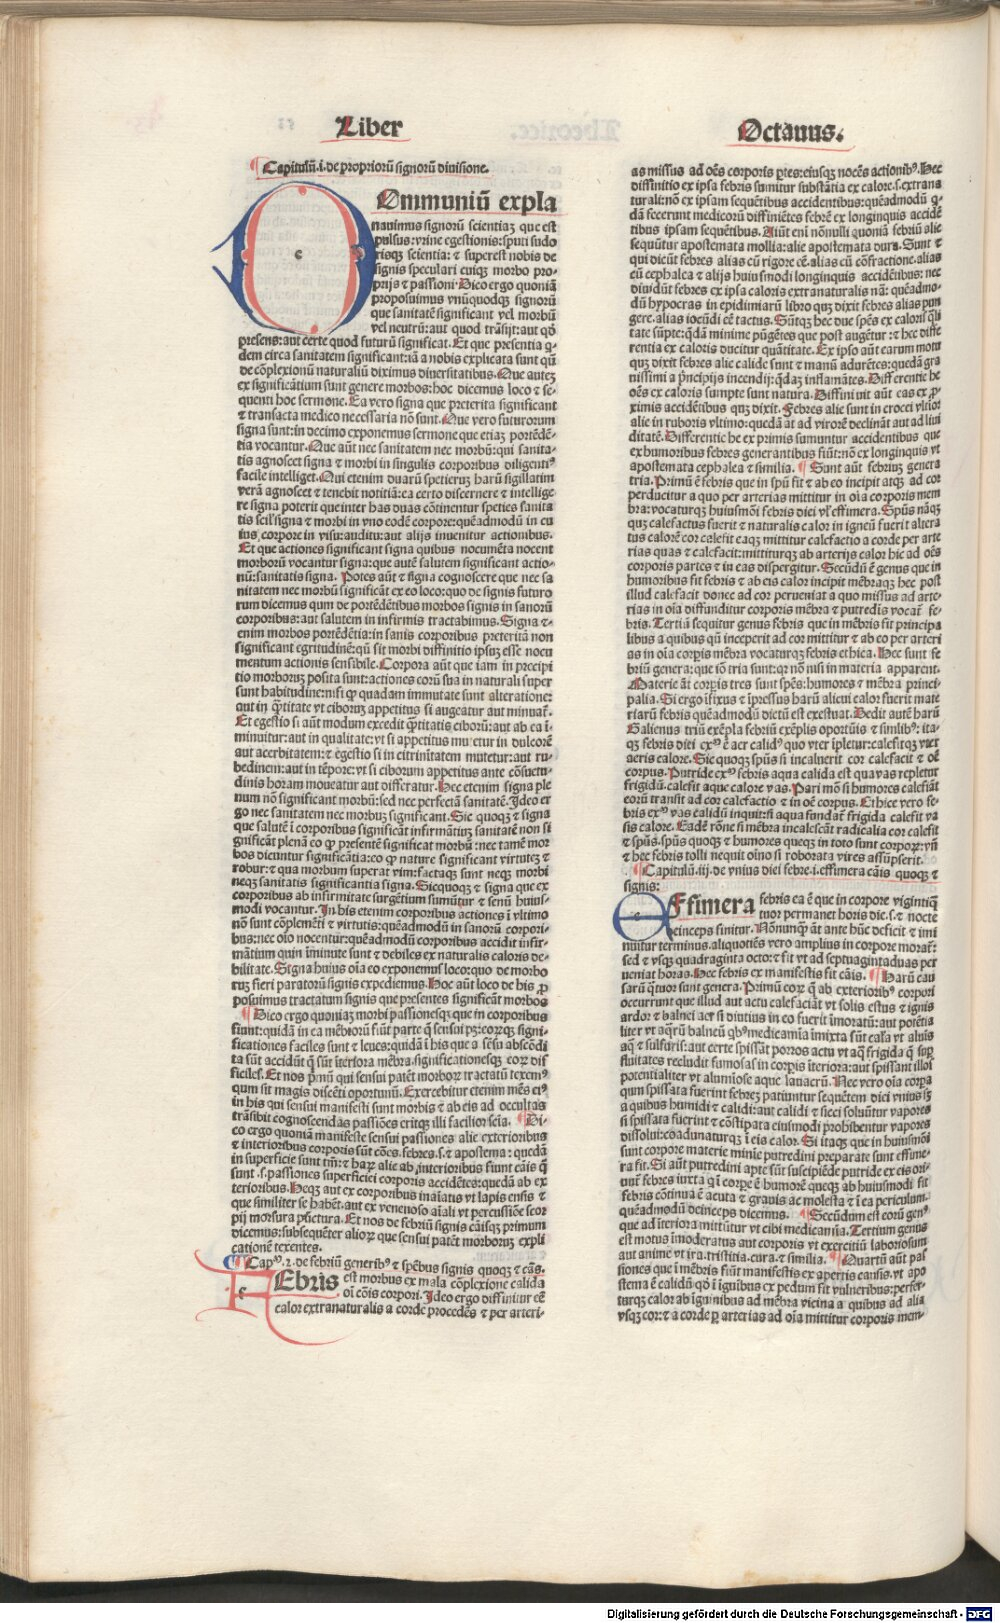 Liber
Octauus.
Capitulū.i.de propriorū signorū diuisione.
Ommuniū expla
nauimus signorū scientiaꝫ que est
pulsus: vrine egestionis: sputi sudo
risqꝫ scientia: ⁊ superest nobis de
signis speculari cuiqꝫ morbo pro-
prijs ⁊ passioni. Dico ergo quoniā
proposuimus vnūquodqꝫ signorū
que sanitatē significant vel morbū
vel neutrū: aut quod trāsijt: aut qđ
presens: aut certe quod futurū significat. Et que presentia q̄-
dem circa sanitatem significant: iā a nobis explicata sunt qn̄
de cōplexionū naturaliū diximus diuersitatibus. Que auteꝫ
ex significātium sunt genere morbos: hoc dicemus loco ⁊ se-
quenti hoc sermone. Ea vero signa que preterita significant
⁊ transacta medico necessaria nō sunt. Que vero futurorum
signa sunt: in decimo exponemus sermone que etiaꝫ portēdē-
tia vocantur. Que aūt nec sanitatem nec morbū: qui sanita-
tis agnoscet signa ⁊ morbi in singulis corporibus diligentiꝰ
facile intelliget. Qui etenim duarū spetierꝫ harū sigillatim
verā agnoscet ⁊ tenebit notitiā: ea certo discernere ⁊ intellige
re signa poterit que inter has duas cōtinentur speties sanita
tis scilꝫ signa ⁊ morbi in vno eodē corpore: quēadmodū in cu
ius corpore in visu: auditu: aut alijs inuenitur actionibus.
Et que actiones significant signa quibus nocumēta nocent
morborū vocantur signa: que autē salutem significant actio-
nū: sanitatis signa. Potes aūt ⁊ signa cognoscere que nec sa
nitatem nec morbū significāt ex eo loco: quo de signis futuro
rum dicemus qum de portēdētibus morbos signis in sanorū
corporibus: aut salutem in infirmis tractabimus. Signa ⁊-
enim morbos portēdētia: in sanis corporibus preteritā non
significant egritudinē: qū sit morbi diffinitio ipsuꝫ esse nocu
mentum actionis sensibile. Corpora aūt que iam in precipi
tio morborum posita sunt: actiones eorū sua in naturali super
sunt habitudine: nisi ꝙ quadam immutate sunt alteratione:
aut in q̄titate vt ciborum appetitus si augeatur aut minuat̄.
Et egestio si aūt modum excedit q̄titatis ciborū: aut ab ea ī-
minuitur: aut in qualitate: vt si appetitus mutetur in dulcorē
aut acerbitatem: ⁊ egestio si in citrinitatem mutetur: aut ru-
bedinem: aut in tēpore: vt si ciborum appetitus ante cōsuetu-
dinis horam moueatur aut differatur. Hec etenim signa ple
num nō significant morbū: sed nec perfectā sanitatē. Ideo er
go nec sanitatem nec morbum significant. Sic quoqꝫ ⁊ signa
que salutē ī corporibus significāt infirmātiū sanitatē non si
gnificāt plenā eo ꝙ presentē significat morbū: nec tamē mor
bos dicuntur significātia: eo ꝙ nature significant virtuteꝫ ⁊
robur: ⁊ qua morbum superat vim: factaqꝫ sunt neqꝫ morbi
neqꝫ sanitatis significantia signa. Sicquoqꝫ ⁊ signa que ex
corporibus ab infirmitate surgētium sumūtur ⁊ senū huius-
modi vocantur. In his etenim corporibus actiones ī vltimo
nō sunt cōplemēti ⁊ virtutis: quēadmodū in sanorū corpori-
bus: nec oīo nocentur: quēadmodū corporibus accidit infir-
mātium quin īminute sunt ⁊ debiles ex naturalis caloris de-
bilitate. Signa huius oīa eo exponemus loco: quo de morbo
rꝫ fieri paratorū signis expediemus. Hoc aūt loco de his ꝓ
posuimus tractatum signis que presentes significāt morbos
Dico ergo quoniaꝫ morbi passionesqꝫ que in corporibus
fiunt: quidā in ea mēbrorū fiūt parte q̄ sensui pꝫ: eorꝫqꝫ signi-
ficationes faciles sunt ⁊ leues: quidā ī his que a sēsu abscōdi
ta sūt accidūt q̄ sūt īteriora mēbra. significationesqꝫ eorꝫ dif
ficiles. Et nos pͥmū qui sensui patēt morborꝫ tractatū texemꝰ
qum sit magis discēti oportunū. Exercebitur etenim mēs eiꝰ
in his qui sensui manifesti sunt morbis ⁊ ab eis ad occultas
trāsibit cognoscendas passiōes eritqꝫ illi facilior scīa. Di-
co ergo quoniā manifeste sensui passiones alie exterioribus
⁊ interioribus corporis sūt cōes. febres. s. ⁊ apostema: quedā
in superficie sunt tm̄: ⁊ harꝫ alie ab īnterioribus fiunt cāis q̄
sunt. s. passiones superficiei corporis accidētes: quedā ab ex
terioribus. Heqꝫ aut ex corporibus inaīatis vt lapis ensis ⁊
que similiter se habēt. aut ex venenoso aīali vt percussiōe scor
pij morsura pūctura. Et nos de febriū signis cāisqꝫ primum
dicemus: subsequēter aliorꝫ que sensui patēt morborum expli
cationē texentes.
Capᵐ.2. de febriū generibꝰ ⁊ spēbus signis quoqꝫ ⁊ cāis.
Ebris est morbus ex mala cōplexione calida
oī cōis corpori. Ideo ergo diffiniūt eē
calor extranaturalis a corde procedēs ⁊ per arteri-
as missus ad oēs corporis ptes: eiusqꝫ nocēs actionibꝰ. Hec
diffinitio ex ipsa febris sumitur substātia ex calore. s. extrana
turali: nō ex ipsam sequētibus accidentibus: quēadmodū q̄-
dā fecerunt medicorū diffiniētes febrē ex longinquis accidē
tibus ipsam sequētibus. Aiūt eni nōnulli quoniā febriū alie
sequūtur apostemata mollia: alie apostemata dura. Sunt ⁊
qui dicūt febres alias cū rigore eē. alias cū cōfractione. alias
cū cephalea ⁊ alijs huiusmodi longinquis accidētibus: nec
diuidūt febres ex ipsa caloris extranaturalis nā: quēadmo-
dū hypocras in epidimiarū libro quꝫ dixit febres alias pun
gere. alias iocūdi eē tactus. Sūtqꝫ hec due spēs ex caloris q̄li
tate sūpte: q̄dā minime pūgētes que post augētur: ⁊ hec diffe
rentia ex caloris ducitur quātitate. Ex ipso aūt earum motu
quꝫ dixit febres alie calide sunt ⁊ manū adurētes: quedā gra
uissimi a pͥncipijs incendij: q̄dāꝫ inflamātes. Differentie he
oēs ex caloris sumpte sunt natura. Diffiniuit aūt eas ex ꝓ
ximis accidētibus quꝫ dixit. Febres alie sunt in crocei vltior
alie in ruboris vltimo: quedā āt ad virorē declināt aut ad liui
ditatē. Differentie he ex primis sumuntur accidentibus que
ex humoribus febres generantibus fiūt: nō ex longinquis vt
apostemata cephalea ⁊ similia. Sunt aūt febrium genera
tria. Primū ē febris que in spū fit ⁊ ab eo incipit atqꝫ ad cor
perducitur a quo per arterias mittitur in oīa corporis mem
bra: vocaturqꝫ huiusmōi febris diei vl effimera. Spūs nāqꝫ
quꝫ calefactus fuerit ⁊ naturalis calor in igneū fuerit altera
tus calorē cor calefit eaqꝫ mittitur calefactio a corde per arte
rias quas ⁊ calefacit: mittiturqꝫ ab arterijs calor hic ad oēs
corporis partes ⁊ in eas dispergitur. Secūdū ē genus que in
humoribus fit febris ⁊ ab eis calor incipit mēbraqꝫ hec post
illud calefacit donec ad cor perueniat a quo missus ad arte-
rias in oīa diffunditur corporis mēbra ⁊ putredis vocat̄ fe-
bris. Tertiū sequitur genus febris que in mēbris fit principa
libus a quibus qū inceperit ad cor mittitur ⁊ ab eo per arteri
as in oīa corpis mēbra vocaturqꝫ febris ethica. Hec sunt fe
briū genera: que iō tria sunt: qr nō nisi in materia apparent.
Materie āt corpis tres sunt spēs: humores ⁊ mēbra princi-
palia. Si ergo īfixus ⁊ īpressus harū alicui calor fuerit mate
riarū febris quēadmodū dictū est exestuat. Dedit autē harū
Galienus triū exēpla febriū exēplis oportūis ⁊ similibꝰ: ita-
qꝫ febris diei exᵐ ē aer calidꝰ quo vter īpletur: calefitqꝫ vter
aeris calore. Sic quoqꝫ spūs si incaluerit cor calefacit ⁊ oē
corpus. Putride exᵐ febris aqua calida est qua vas repletur
frigidū. calefit aque calore vas. Pari mō si humores calefiāt
eorū transit ad cor calefactio ⁊ in oē corpus. Ethice vero fe-
bris exᵐ vas calidū inquit: si aqua fundat̄ frigida calefit va
sis calore. Eadē rōne si mēbra incalescāt radicalia cor calefit
⁊ spūs. spūs quoqꝫ ⁊ humores queqꝫ in toto sunt corpore: vn̄
⁊ hec febris tolli nequit oīno si roborata vires assūpserit.
Capitulū.iij. de vnius diei febre. i. effimera cāis quoqꝫ ⁊
signis:
Ffimera febris ea ē que in corpore vigintiqꝫ
tuor permanet horis die. s. ⁊ nocte
deinceps finitur. Nōnunqꝫ āt ante hūc deficit ⁊ imi
nuitur terminus. aliquotiēs vero amplius in corpore morat̄:
sed ⁊ vsqꝫ quadraginta octo: ⁊ fit vt ad septuagintaduas per
ueniat horas. Hec febris ex manifestis fit cāis. Harū cau
sarū q̄tuor sunt genera. Primū eorꝫ q̄ ab exterioribꝰ corpori
occurrunt que illud aut actu calefaciāt vt solis estus ⁊ ignis
ardor ⁊ balnei aer si diutius in eo fuerit īmoratū: aut potētia
liter vt aq̄rū balneū qbꝰ medicamīa īmixta sūt calꝫa vt aluīs
aq̄ ⁊ sulfuris: aut certe spissāt porros actu vt aqꝫ frigida q̄ suꝑ
fluitates recludit fumosas in corpis īteriora: aut spissant illos
potentialiter vt alumiose aque lauacrū. Nec vero oīa corpa
qum spissata fuerint febreꝫ patiuntur sequētem diei vnius sꝫ
a quibus humidi ⁊ calidi: aut calidi ⁊ sicci soluūtur vapores
si spissata fuerint ⁊ cōstipata eiusmodi ꝓhibentur vapores
dissolui: coadunaturqꝫ ī eis calor. Si itaqꝫ que in huiusmōi
sunt corpore materie minie putredini preparate sunt effime-
ra fit. Si aūt putredini apte sūt suscipiēde putride ex eis ori-
unt̄ febres iuxta qͥ ī corpe ē humorē quēqꝫ ab huiusmodi fit
febris continua ē acuta ⁊ grauis ac molesta ⁊ ī ea periculum.
quēadmodū deinceps dicemus. Secūdum est eorū genꝰ
que ad īteriora mittūtur vt cibi medicamīa. Tertium genus
est motus īmoderatus aut corporis vt exercitiū laboriosum
aut anime vt ira. tristitia. cura. ⁊ similia. Quartū aūt pas
siones que ī mēbris fiūt manifestis ex apertis causis. vt apo
stema ē calidū qđ ī īguibus ex pedum fit vulneribus: perfer-
turqꝫ calor ab īguinibus ad mēbra vicina a quibus ad alia
vsqꝫ cor: ⁊ a corde per arterias ad oīa mittitur corporis mem-
Digitalisierung gefördert durch die Deutsche Forschungsgemeinschaft - DFG